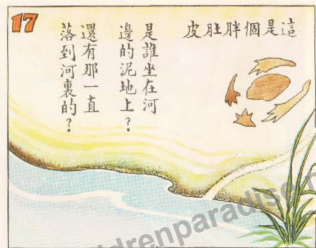 17
這是個胖肚皮
是誰坐在河
邊的泥地上？
還有那一直
落到河裏的？
ldrenparadise.c